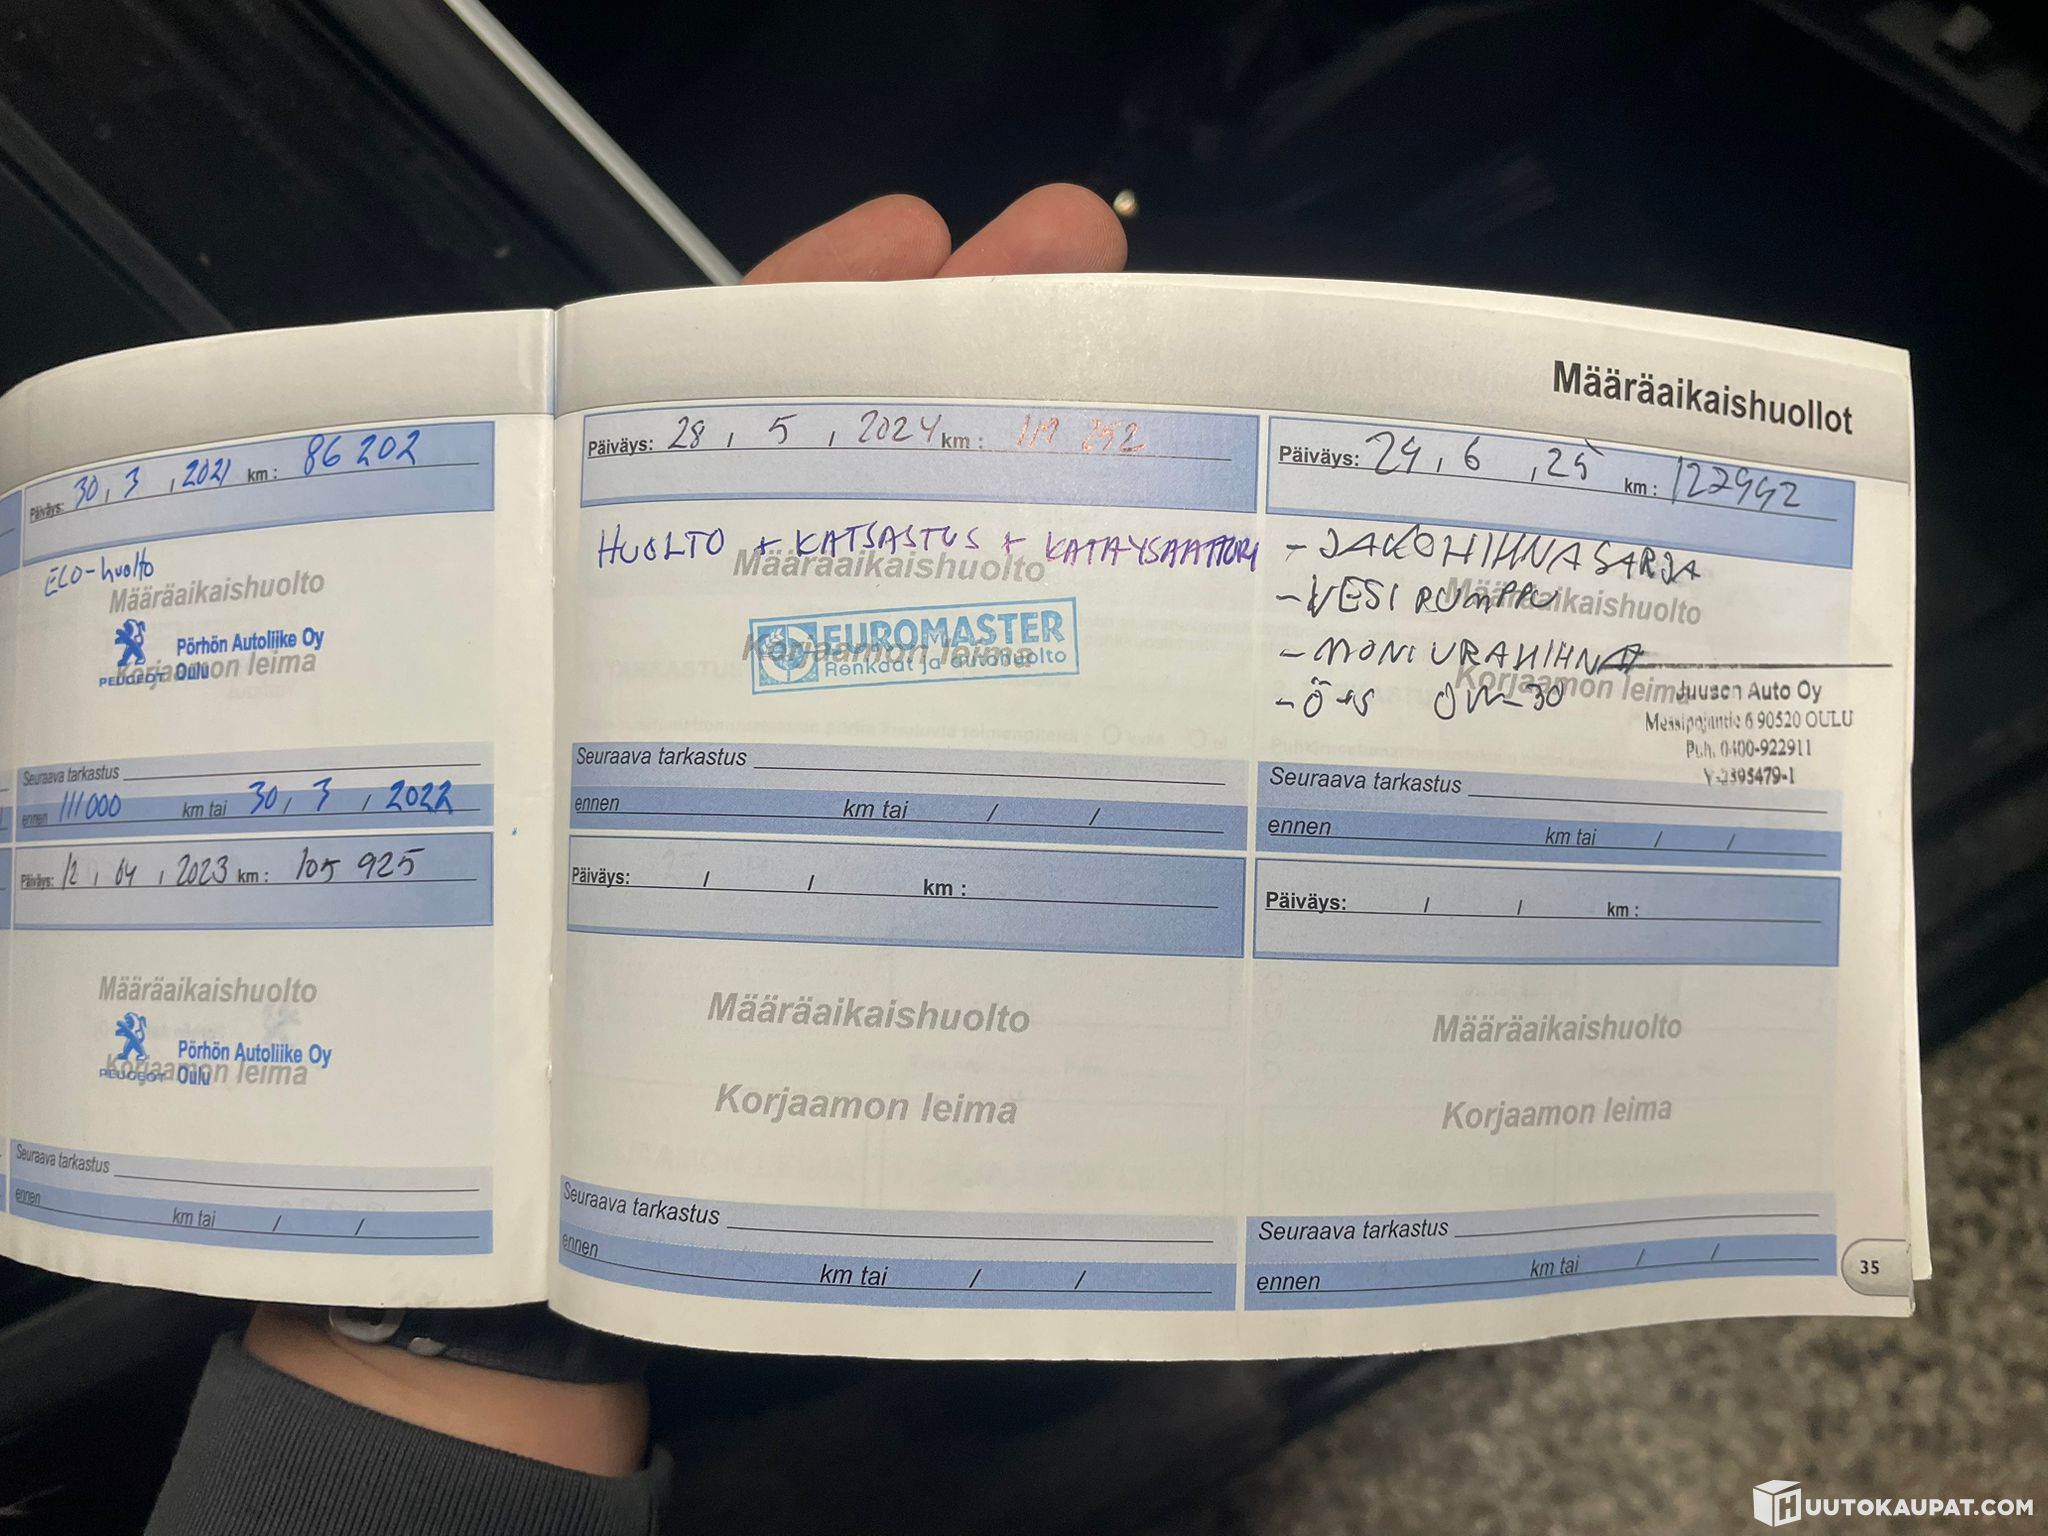 Määräaikaishuollot
Päiväys: 30 / 3 / 2021 km : 86 202
ECO-huolto
Määräaikaishuolto
Pörhön Autoliike Oy
PEUGEOT Oulu
Korjaamon leima
Seuraava tarkastus
ennen 111000 km tai 30 / 3 / 2022
Päiväys: 12 / 04 / 2023 km : 105 925
Määräaikaishuolto
Pörhön Autoliike Oy
PEUGEOT Oulu
Korjaamon leima
Seuraava tarkastus
ennen km tai / /
Päiväys: 28 / 5 / 2024 km : 119 252
HUOLTO + KATSASTUS +
Määräaikaishuolto
EUROMASTER
Renkaat ja autohuolto
Korjaamon leima
Seuraava tarkastus
ennen km tai / /
Päiväys: / / km :
Määräaikaishuolto
Korjaamon leima
Seuraava tarkastus
ennen km tai / /
Päiväys: 24 / 6 / 25 km :
- JAKOHIHNASARJA
- VESIPUMPPU
Määräaikaishuolto
- MONIURAHIHNA
Korjaamon leima
- Ö+S 0W-30
Juuson Auto Oy
6 90520 OULU
Puh. 0400-922911
Seuraava tarkastus
ennen km tai / /
Päiväys: / / km :
Määräaikaishuolto
Korjaamon leima
Seuraava tarkastus
ennen km tai / /
35
HUUTOKAUPAT.COM